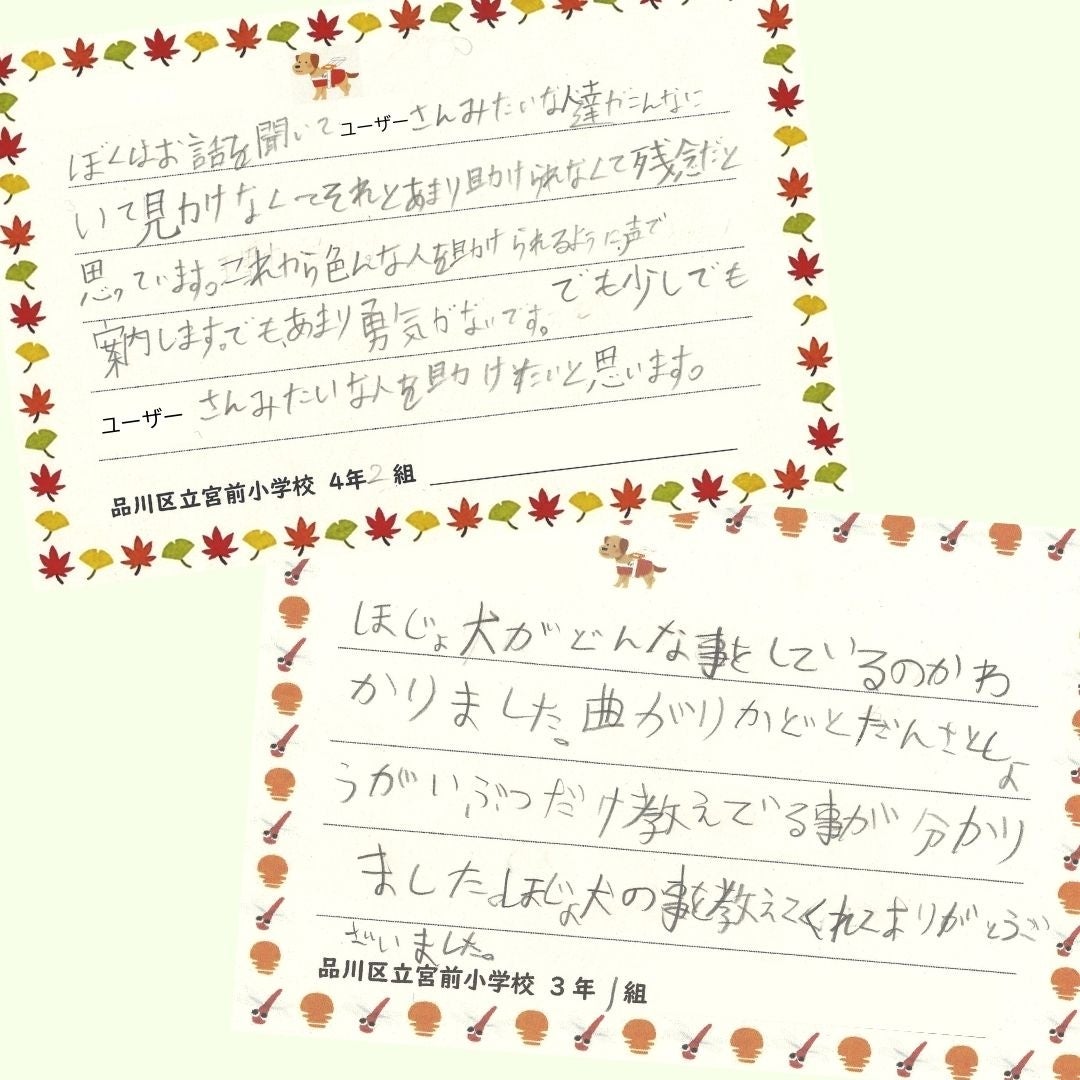 ぼくはお話を聞いてユーザーさんみたいな人達がこんなに
いて見かけなくてそれとあまり助けられなくて残念だと
思っています。これから色んな人を助けられるように声で
案内します。でもあまり勇気がないです。でも少しでも
ユーザーさんみたいな人を助けたいと思います。
品川区立宮前小学校 4年2組
ほじょ犬がどんな事をしているのかわ
かりました。曲がりかどとだんさとしょ
うがいぶつだけ教えてる事が分かり
ました。ほじょ犬の事を教えてくれてありがとうご
ざいました。
品川区立宮前小学校 3年1組